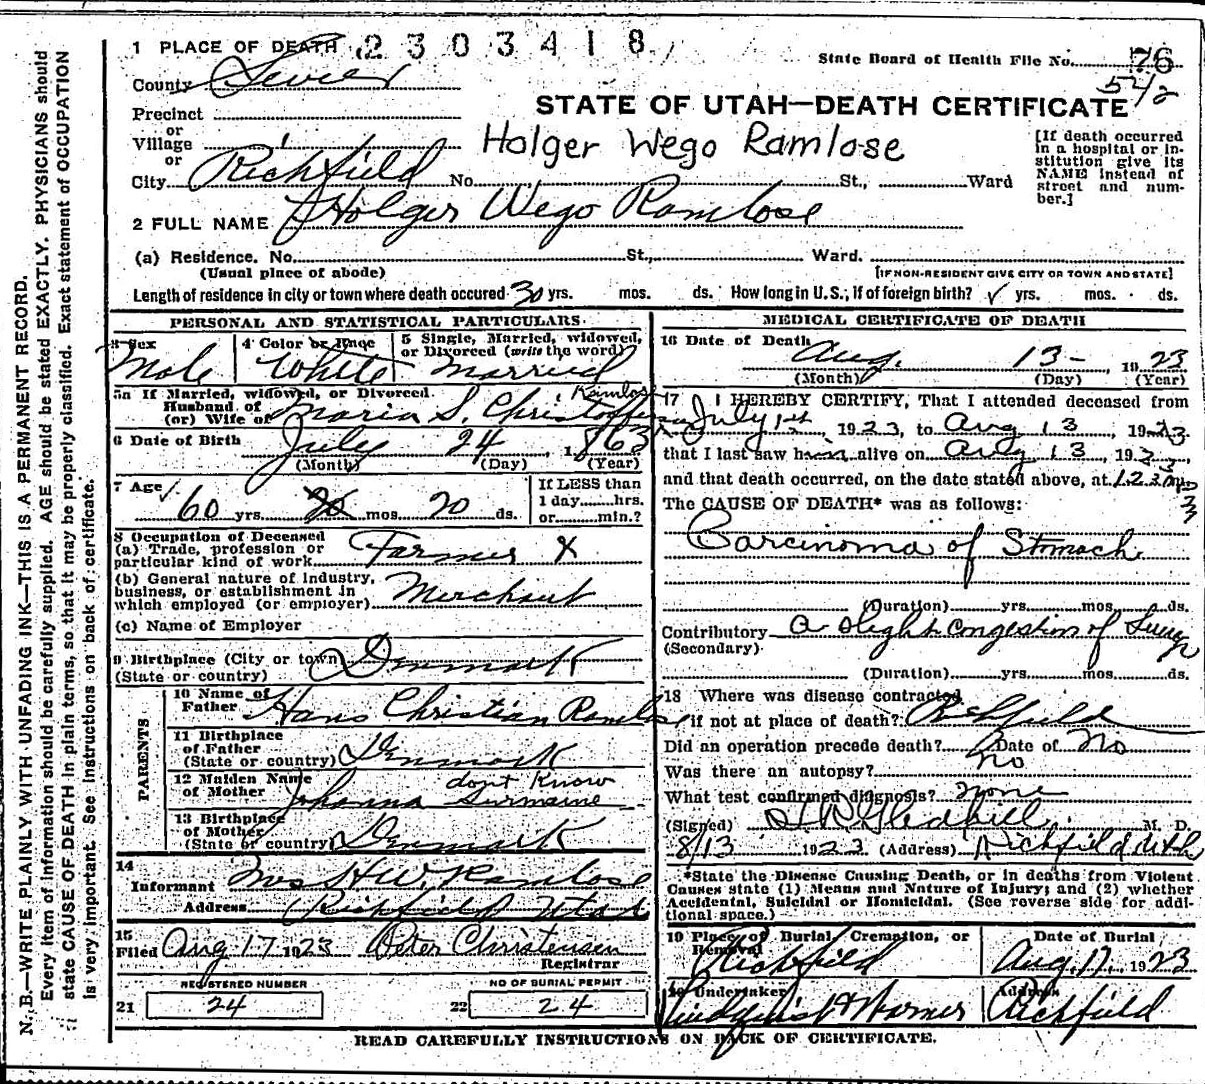 1 PLACE OF DEATH 2303418
State Board of Health File No. 76
County Sevier
54/2
STATE OF UTAH—DEATH CERTIFICATE
Precinct
or
Village
or
Holger Wego Ramlose
[If death occurred
in a hospital or in-
stitution give its
NAME instead of
street and num-
ber.]
City Richfield No. St., Ward
2 FULL NAME Holger Wego Ramlose
(a) Residence. No. St., Ward.
(Usual place of abode)
[IF NON-RESIDENT GIVE CITY OR TOWN AND STATE]
Length of residence in city or town where death occured 30 yrs. mos. ds. How long in U.S., if of foreign birth? ✓ yrs. mos. ds.
PERSONAL AND STATISTICAL PARTICULARS
3 Sex
Male
4 Color or Race
White
5 Single, Married, widowed,
or Divorced (write the word)
Married
5a If Married, widowed, or Divorced
Husband of
(or) Wife of Maria S. Ramlose
6 Date of Birth
July 24, 1863
(Month) (Day) (Year)
7 Age
60 yrs. mos. 20 ds.
If LESS than
1 day hrs.
or min.?
8 Occupation of Deceased
(a) Trade, profession or
particular kind of work Farmer X
(b) General nature of industry,
business, or establishment in
which employed (or employer) Merchant
(c) Name of Employer
9 Birthplace (City or town)
(State or country) Denmark
PARENTS
10 Name of
Father Hans Christian Ramlose
11 Birthplace
of Father
(State or country) Denmark
12 Maiden Name
of Mother dont Know
Johanna Surname
13 Birthplace
of Mother
(State or country) Denmark
14
Informant Mrs H W. Ramlose
Address Richfield Utah
15
Filed Aug 17 1923 Peter Christensen
Registrar
REGISTERED NUMBER
21 24
NO OF BURIAL PERMIT
22 24
MEDICAL CERTIFICATE OF DEATH
16 Date of Death
Aug. 13 - 1923
(Month) (Day) (Year)
17 I HEREBY CERTIFY, That I attended deceased from
July 1st, 1923, to Aug 13, 1923
that I last saw him alive on Aug 13, 1923,
and that death occurred, on the date stated above, at
The CAUSE OF DEATH* was as follows:
Carcinoma of Stomach
(Duration) yrs. mos. ds.
Contributory a slight congestion of Lungs
(Secondary)
(Duration) yrs. mos. ds.
18 Where was disease contracted
if not at place of death? Richfield
Did an operation precede death? Date of No
Was there an autopsy? No
What test confirmed diagnosis? none
(Signed) Gledhill M. D.
8/13 1923 (Address) Richfield Utah
*State the Disease Causing Death, or in deaths from Violent
Causes state (1) Means and Nature of Injury; and (2) whether
Accidental, Suicidal or Homicidal. (See reverse side for addi-
tional space.)
19 Place of Burial, Cremation, or
Removal
Richfield
Date of Burial
Aug. 17. 1923
20 Undertaker
Address
Richfield
READ CAREFULLY INSTRUCTIONS ON BACK OF CERTIFICATE.
N. B.—WRITE PLAINLY WITH UNFADING INK—THIS IS A PERMANENT RECORD.
Every item of information should be carefully supplied. AGE should be stated EXACTLY. PHYSICIANS should
state CAUSE OF DEATH in plain terms, so that it may be properly classified. Exact statement of OCCUPATION
is very important. See instructions on back of certificate.